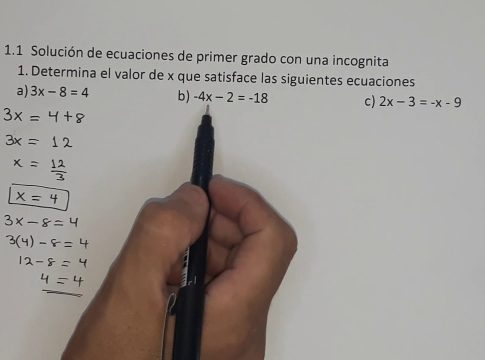 1.1 Solución de ecuaciones de primer grado con una incognita
1. Determina el valor de x que satisface las siguientes ecuaciones
a) 3x – 8 = 4
b) -4x – 2 = -18
c) 2x – 3 = -x - 9
3x = 4+8
3x = 12
x = 12/3
x = 4
3x - 8 = 4
3(4) - 8 = 4
12 - 8 = 4
4 = 4